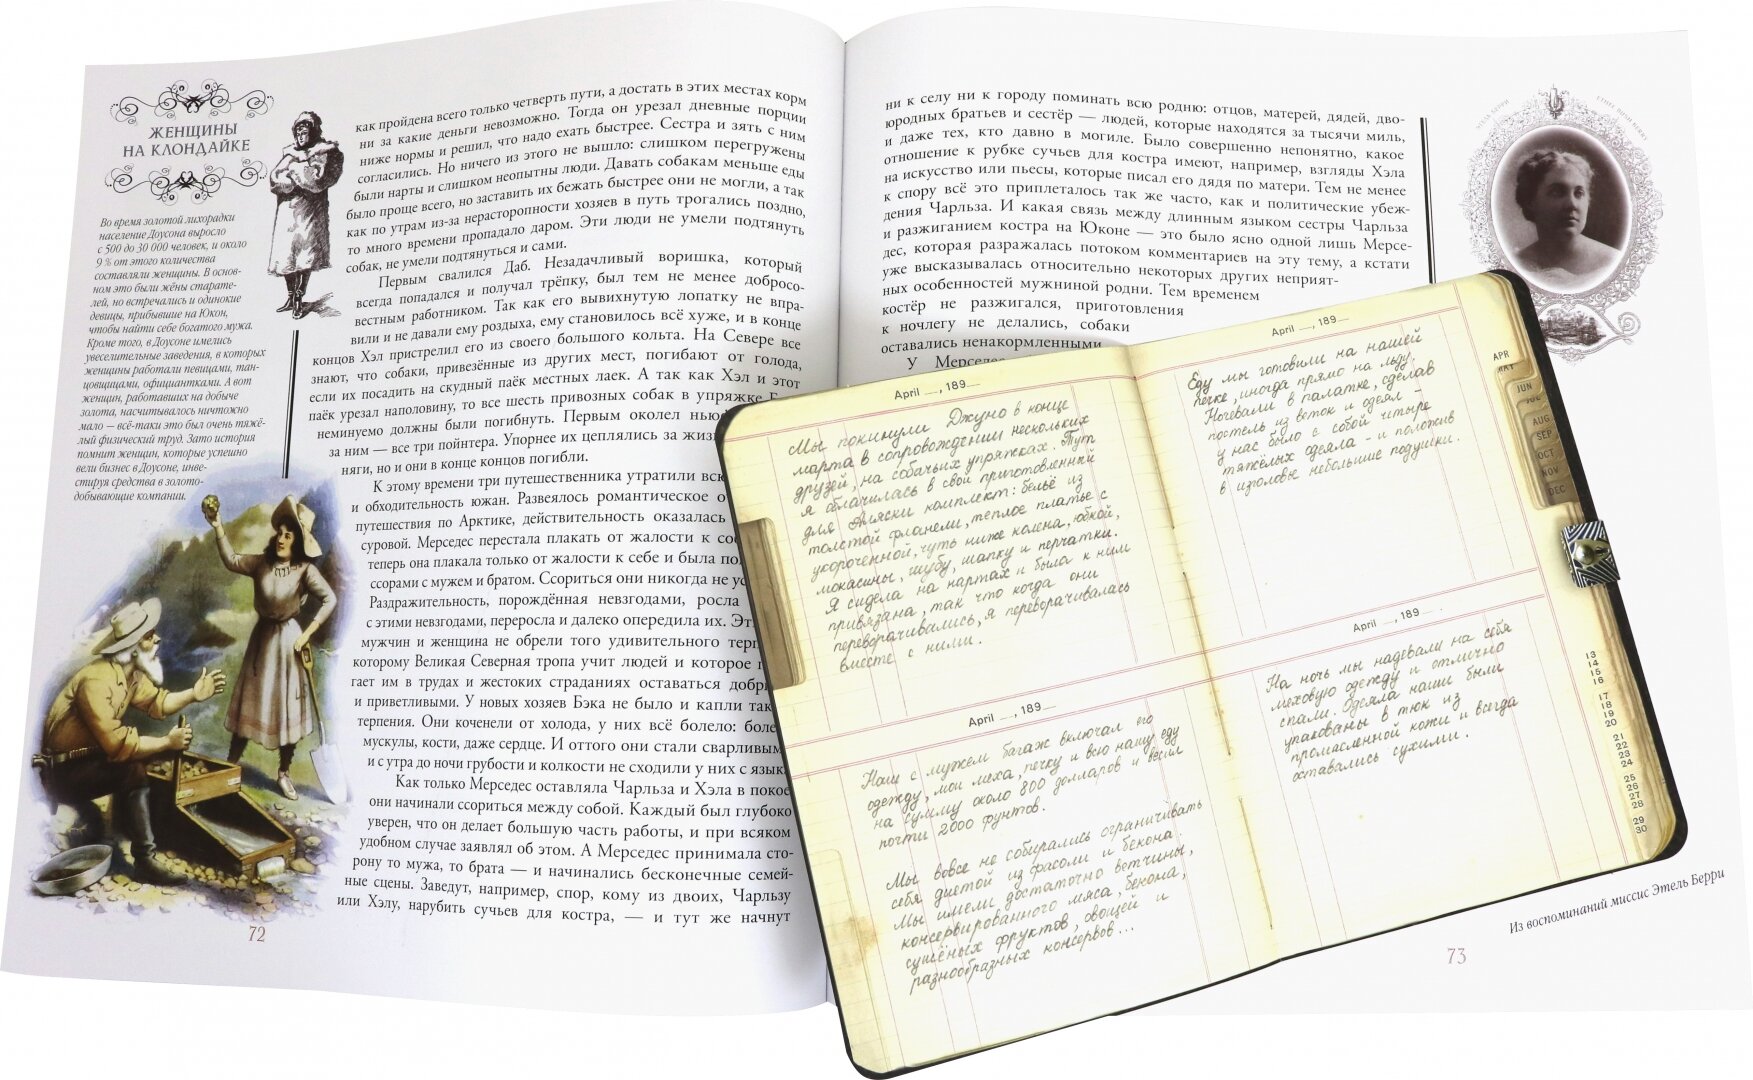 ЖЕНЩИНЫ
НА КЛОНДАЙКЕ
Во время золотой лихорадки
население Доусона выросло
с 500 до 30 000 человек, и около
9 % от этого количества
составляли женщины. В основ-
ном это были жёны старате-
лей, но встречались и одинокие
девицы, прибывшие на Юкон,
чтобы найти себе богатого мужа.
Кроме того, в Доусоне имелись
увеселительные заведения, в которых
женщины работали певицами, тан-
цовщицами, официантками. А вот
женщин, работавших на добыче
золота, насчитывалось ничтожно
мало — всё-таки это был очень тяжё-
лый физический труд. Зато история
помнит женщин, которые успешно
вели бизнес в Доусоне, инве-
стируя средства в золото-
добывающие компании.
как пройдена всего только четверть пути, а достать в этих местах корм
ни за какие деньги невозможно. Тогда он урезал дневные порции
ниже нормы и решил, что надо ехать быстрее. Сестра и зять с ним
согласились. Но ничего из этого не вышло: слишком перегружены
были нарты и слишком неопытны люди. Давать собакам меньше еды
было проще всего, но заставить их бежать быстрее они не могли, а так
как по утрам из-за нерасторопности хозяев в путь трогались поздно,
то много времени пропадало даром. Эти люди не умели подтянуть
собак, не умели подтянуться и сами.
Первым свалился Даб. Незадачливый воришка, который
всегда попадался и получал трёпку, был тем не менее добросо-
вестным работником. Так как его вывихнутую лопатку не впра-
вили и не давали ему роздыха, ему становилось всё хуже, и в конце
концов Хэл пристрелил его из своего большого кольта. На Севере все
знают, что собаки, привезённые из других мест, погибают от голода,
если их посадить на скудный паёк местных лаек. А так как Хэл и этот
паёк урезал наполовину, то все шесть привозных собак в упряжке
неминуемо должны были погибнуть. Первым околел
за ним — все три пойнтера. Упорнее их цеплялись за
няги, но и они в конце концов погибли.
К этому времени три путешественника утратили
и обходительность южан. Развеялось романтическое
путешествия по Арктике, действительность оказалась
суровой. Мерседес перестала плакать от жалости к
теперь она плакала только от жалости к себе и была
ссорами с мужем и братом. Ссориться они никогда не
Раздражительность, порождённая невзгодами, росла
с этими невзгодами, переросла и далеко опередила их.
мужчин и женщина не обрели того удивительного
которому Великая Северная тропа учит людей и которое
гает им в трудах и жестоких страданиях оставаться
и приветливыми. У новых хозяев Бэка не было и капли
терпения. Они коченели от холода, у них всё болело:
мускулы, кости, даже сердце. И оттого они стали сварливым
и с утра до ночи грубости и колкости не сходили у них с язык
Как только Мерседес оставляла Чарльза и Хэла в покое
они начинали ссориться между собой. Каждый был глубоко
уверен, что он делает большую часть работы, и при всяком
удобном случае заявлял об этом. А Мерседес принимала сто-
рону то мужа, то брата — и начинались бесконечные семей-
ные сцены. Заведут, например, спор, кому из двоих, Чарльзу
или Хэлу, нарубить сучьев для костра, — и тут же начнут
72
ни к селу ни к городу поминать всю родню: отцов, матерей, дядей, дво-
юродных братьев и сестёр — людей, которые находятся за тысячи миль,
и даже тех, кто давно в могиле. Было совершенно непонятно, какое
отношение к рубке сучьев для костра имеют, например, взгляды Хэла
на искусство или пьесы, которые писал его дядя по матери. Тем не менее
к спору всё это приплеталось так же часто, как и политические убеж-
дения Чарльза. И какая связь между длинным языком сестры Чарльза
и разжиганием костра на Юконе — это было ясно одной лишь Мерсе-
дес, которая разражалась потоком комментариев на эту тему, а кстати
уже высказывалась относительно некоторых других неприят-
ных особенностей мужниной родни. Тем временем
костёр не разжигался, приготовления
к ночлегу не делались, собаки
оставались ненакормленными.
У Мерседес
April —, 189—
Мы покинули Джуно в конце
марта в сопровождении нескольких
друзей, на собачьих упряжках. Тут
я облачилась в свой приготовленный
для Аляски комплект: бельё из
толстой фланели, тёплое платье с
укороченной, чуть ниже колена, юбкой,
мокасины, шубу, шапку и перчатки.
Я сидела на нартах и была к ним
привязана, так что когда они
переворачивались, я переворачивалась
вместе с ними.
April —, 189—
Наш с мужем багаж включал его
одежду, мои меха, печку и всю нашу еду
на сумму около 800 долларов и весил
почти 2000 фунтов.
Мы вовсе не собирались ограничивать
себя диетой из фасоли и бекона.
Мы имели достаточно ветчины,
консервированного мяса, бекона,
сушёных фруктов, овощей и
разнообразных консервов...
April —, 189—
Еду мы готовили на нашей
печке, иногда прямо на льду.
Ночевали в палатке, сделав
постель из веток и одеял –
у нас было с собой четыре
тяжёлых одеяла - и положив
в изголовье небольшие подушки.
April —, 189—
На ночь мы надевали на себя
меховую одежду и отлично
спали. Одеяла наши были
упакованы в тюк из
промасленной кожи и всегда
оставались сухими.
APR
MAY
JUN
JUL
AUG
SEP
OCT
NOV
DEC
13
14
15
16
17
18
19
20
21
22
23
24
25
26
27
28
29
30
Из воспоминаний миссис Этель Берри
73